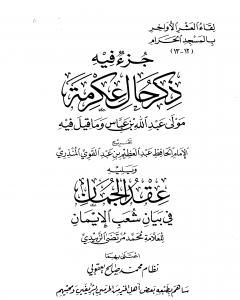 لقاء العشر الأواخر
بالمسجد الحرام
(١٢-١٣)
جزء فيه
ذكر حال عكرمة
مولى عبد الله بن عباس وما قيل فيه
تخريج
الإمام الحافظ عبد العظيم بن عبد القوي المنذري
ويليه
عقد الجمان
في بيان شعب الإيمان
للعلامة محمد مرتضى الزبيدي
اعتنى بهما
نظام محمد صالح يعقوبي
ساهم بطبعه بعض أهل الخير من الحرمين الشريفين ومحبيهم